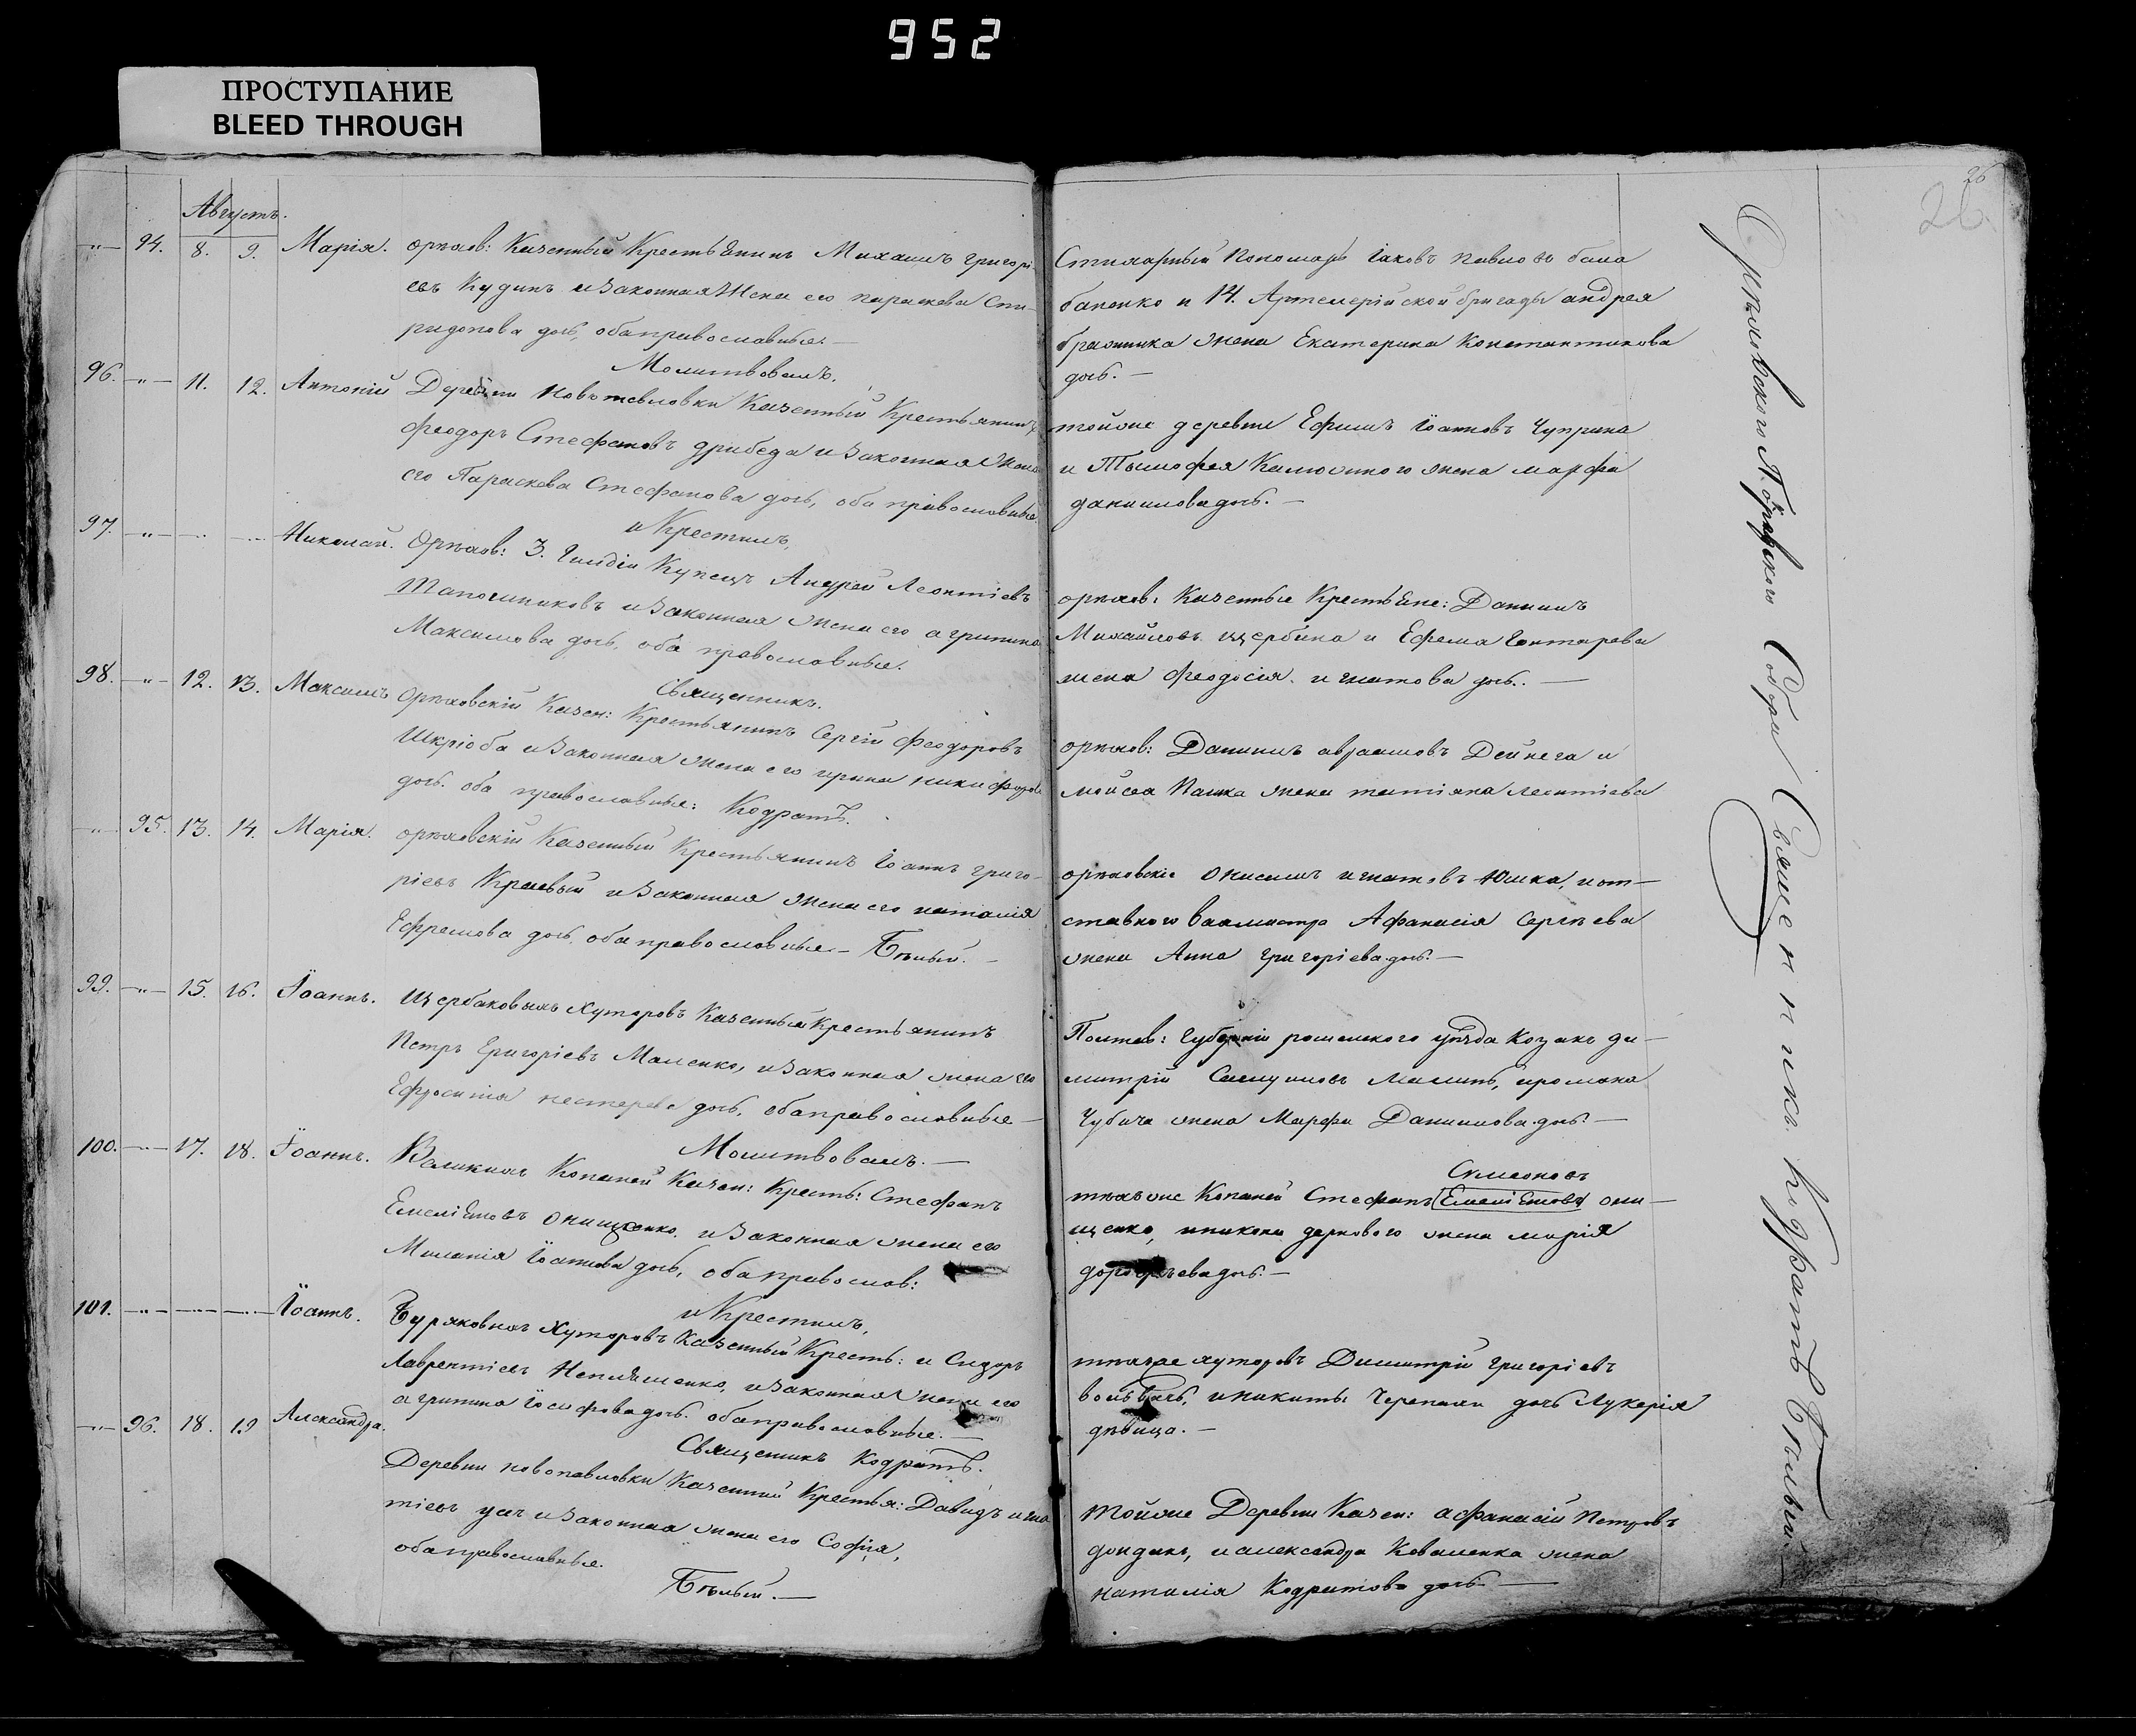 952
ПРОСТУПАНИЕ
BLEED THROUGH
26
26.
Августъ.
94. 8. 9. Марія. орѣхов: Казенный Крестьянинъ Михаилъ Григорі-
евъ Кудинъ и Законная Жена его параскева Спи-
ридонова дочь, оба православные.
Молитвовалъ,
96. 11. 12. Антоній Деревни Казенный Крестьянинъ
феодоръ Стефановъ дрибеда и Законная жена
его Параскева Стефанова дочь, оба православные
и Крестилъ,
97. Николай. Орѣхов: 3. Гилдіи Купецъ Андрей Леонтіевъ
и Законная жена его агрипина
Максимова дочь, оба православные.
Священникъ.
98. 12. 13. Максимъ Орѣховскій Казен: Крестьянинъ Сергій феодоровъ
Шкріоба и Законная жена его ирина никифорова
дочь. оба православные: Кодратъ.
95. 13. 14. Марія. орѣховскій Казенный Крестьянинъ Іоаннъ григо-
ріевъ и Законная жена его наталія
Ефремова дочь. оба православные - Бѣлый. -
99. 15. 16. Іоаннъ. Щербаковыхъ Хуторовъ Казенный Крестьянинъ
Петръ Григоріевъ и Законная жена его
Ефросинія нестерова дочь, оба православные
Молитвовалъ. -
100. 17. 18. Іоаннъ. Великихъ Копаней Казен: Кресть: Стефанъ
Емеліяновъ онищенко, и Законная жена его
Меланія Іоаннова дочь, оба православ:
и Крестилъ,
101. Іоаннъ. Буряковыхъ Хуторовъ Казенный Кресть: и Сидоръ
Лаврентіевъ и Законная жена его
агрипина Іосифова дочь. оба православные. -
Священникъ Кодратъ.
96. 18. 19 Александра. Деревни новопавловки Казенный Крестья: Давидъ игна
тіевъ усъ и Законная жена его Софія,
оба православные.
Бѣлый. -
Стихарный Пономарь Іаковъ Павловъ бала
баненко и 14. Артелерійской бригады андрея
жена Екатерина Константинова
дочь. -
тойже деревни Ефимъ Іоанновъ Чуприна
и Тымофея жена марфа
данилова дочь. -
орѣхов: Казенные Крестьяне: Даниилъ
Михайловъ щербина и Ефема Гонтарева
жена феодосія игнатова дочь. -
орѣхов: Даниилъ авраамовъ Дейнега и
мойсея Пашка жена татіяна леонтіева
орѣховскіе онисимъ игнатовъ Юшка, и от-
ставного вахмистра Афанасія Сергѣева
жена Анна григоріева дочь. -
Полтав: Губерніи роменского уѣзда Козакъ ди-
митрій
жена Марфа Данилова дочь. -
Симеоновъ
тѣхъже Копаней Стефанъ (Емеліяновъ) они-
щенко, жена марія
дорофѣева дочь. -
тѣхъже хуторовъ Димитрій григоріевъ
и никиты Черепахи дочь Лукерія
дѣвица. -
тойже Деревни Казен: афанасій Петровъ
дондикъ, и александра Коваленка жена
наталія Кодратова дочь -
Орѣховского Покровского Собора Священникъ Кодратъ Бѣлый. -